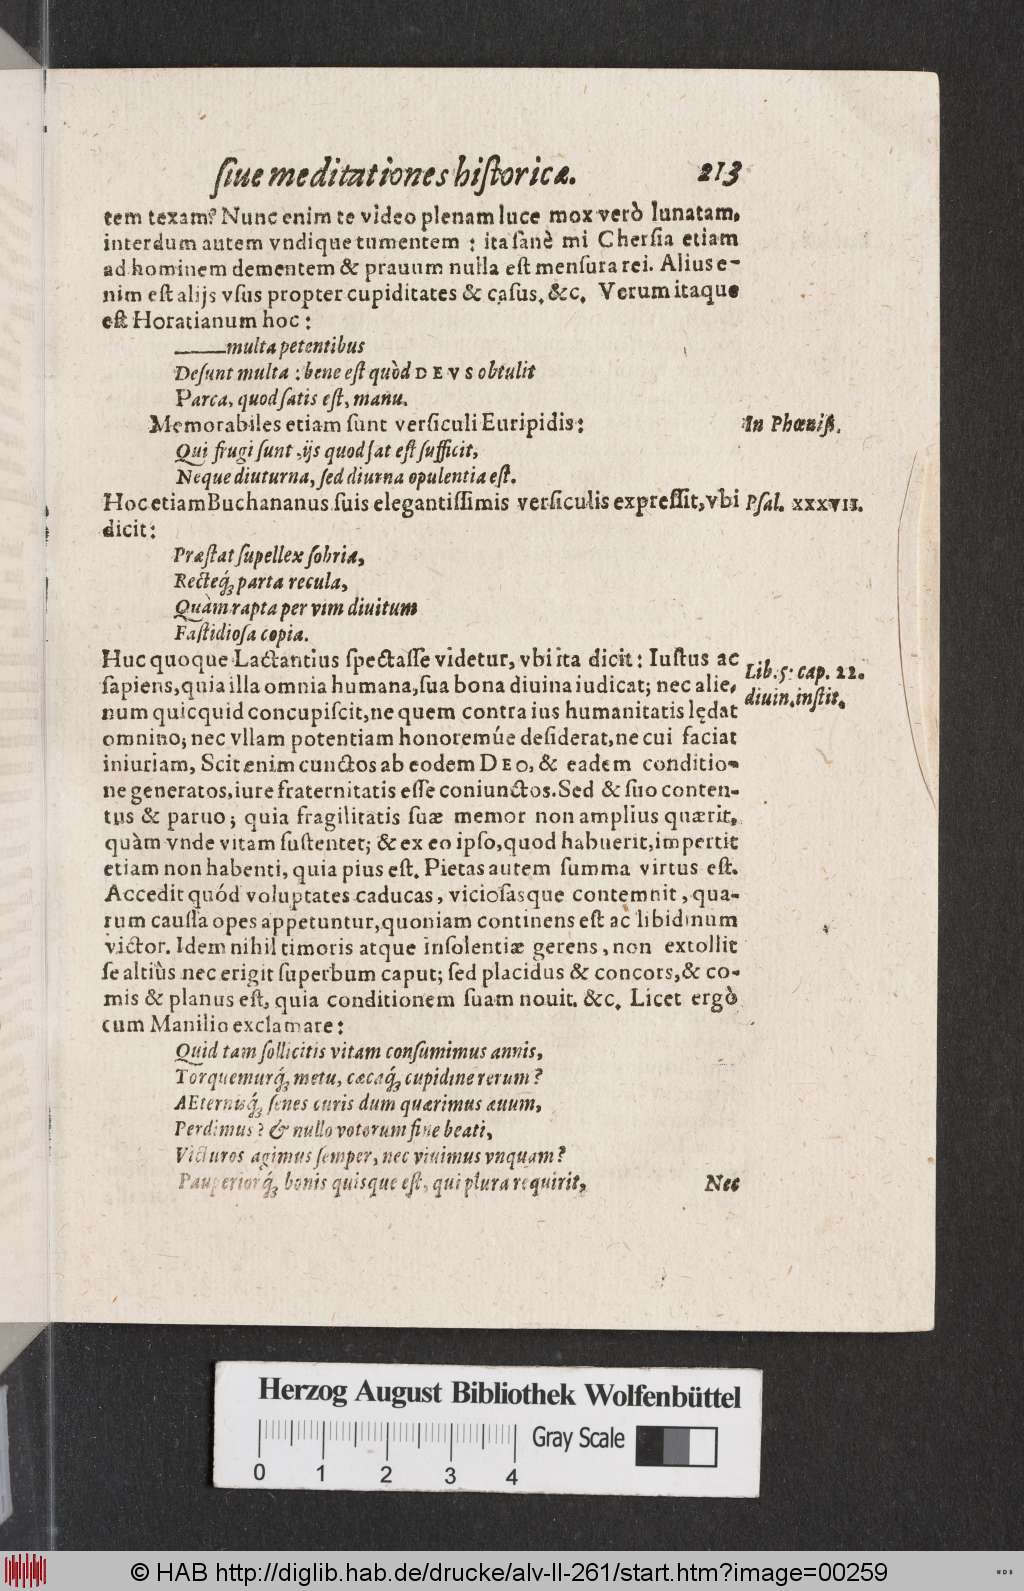 ſiue meditationes hiſtoricæ. 213
tem texam? Nunc enim te video plenam luce mox verò lunatam,
interdum autem vndique tumentem : ita ſanè mi Cherſia etiam
ad hominem dementem & prauum nulla eſt menſura rei. Alius e-
nim eſt alijs vſus propter cupiditates & caſus, &c. Verum itaque
eſt Horatianum hoc :
——multa petentibus
Deſunt multa : bene eſt quòd DEVS obtulit
Parca, quod ſatis eſt, manu.
Memorabiles etiam ſunt verſiculi Euripidis :
In Phœniß.
Qui frugi ſunt, ijs quod ſat eſt ſufficit,
Neque diuturna, ſed diurna opulentia eſt.
Hoc etiam Buchananus ſuis elegantiſſimis verſiculis expreſſit, vbi
Pſal. XXXVII.
dicit :
Præſtat ſupellex ſobria,
Recteq́; parta recula,
Quàm rapta per vim diuitum
Faſtidioſa copia.
Huc quoque Lactantius ſpectaſſe videtur, vbi ita dicit : Iuſtus ac
Lib. 5. cap. 22.
ſapiens, quia illa omnia humana, ſua bona diuina iudicat; nec alie-
diuin. inſtit.
num quicquid concupiſcit, ne quem contra ius humanitatis lędat
omnino; nec vllam potentiam honoremúe deſiderat, ne cui faciat
iniuriam, Scit enim cunctos ab eodem DEO, & eadem conditio-
ne generatos, iure fraternitatis eſſe coniunctos. Sed & ſuo conten-
tus & paruo; quia fragilitatis ſuæ memor non amplius quærit,
quàm vnde vitam ſuſtentet; & ex eo ipſo, quod habuerit, impertit
etiam non habenti, quia pius eſt. Pietas autem ſumma virtus eſt.
Accedit quód voluptates caducas, vicioſasque contemnit, qua-
rum cauſſa opes appetuntur, quoniam continens eſt ac libidinum
victor. Idem nihil timoris atque inſolentiæ gerens, non extollit
ſe altiùs nec erigit ſuperbum caput; ſed placidus & concors, & co-
mis & planus eſt, quia conditionem ſuam nouit. &c. Licet ergò
cum Manilio exclamare :
Quid tam ſollicitis vitam conſumimus annis,
Torquemurq́; metu, cæcaq́; cupidine rerum?
AEternisq́; ſenes curis dum quærimus æuum,
Perdimus? & nullo votorum fine beati,
Victuros agimus ſemper, nec viuimus vnquam?
Pauperiorq́; bonis quisque eſt, qui plura requirit,
Nec
Herzog August Bibliothek Wolfenbüttel
Gray Scale
0 1 2 3 4
© HAB http://diglib.hab.de/drucke/alv-ll-261/start.htm?image=00259